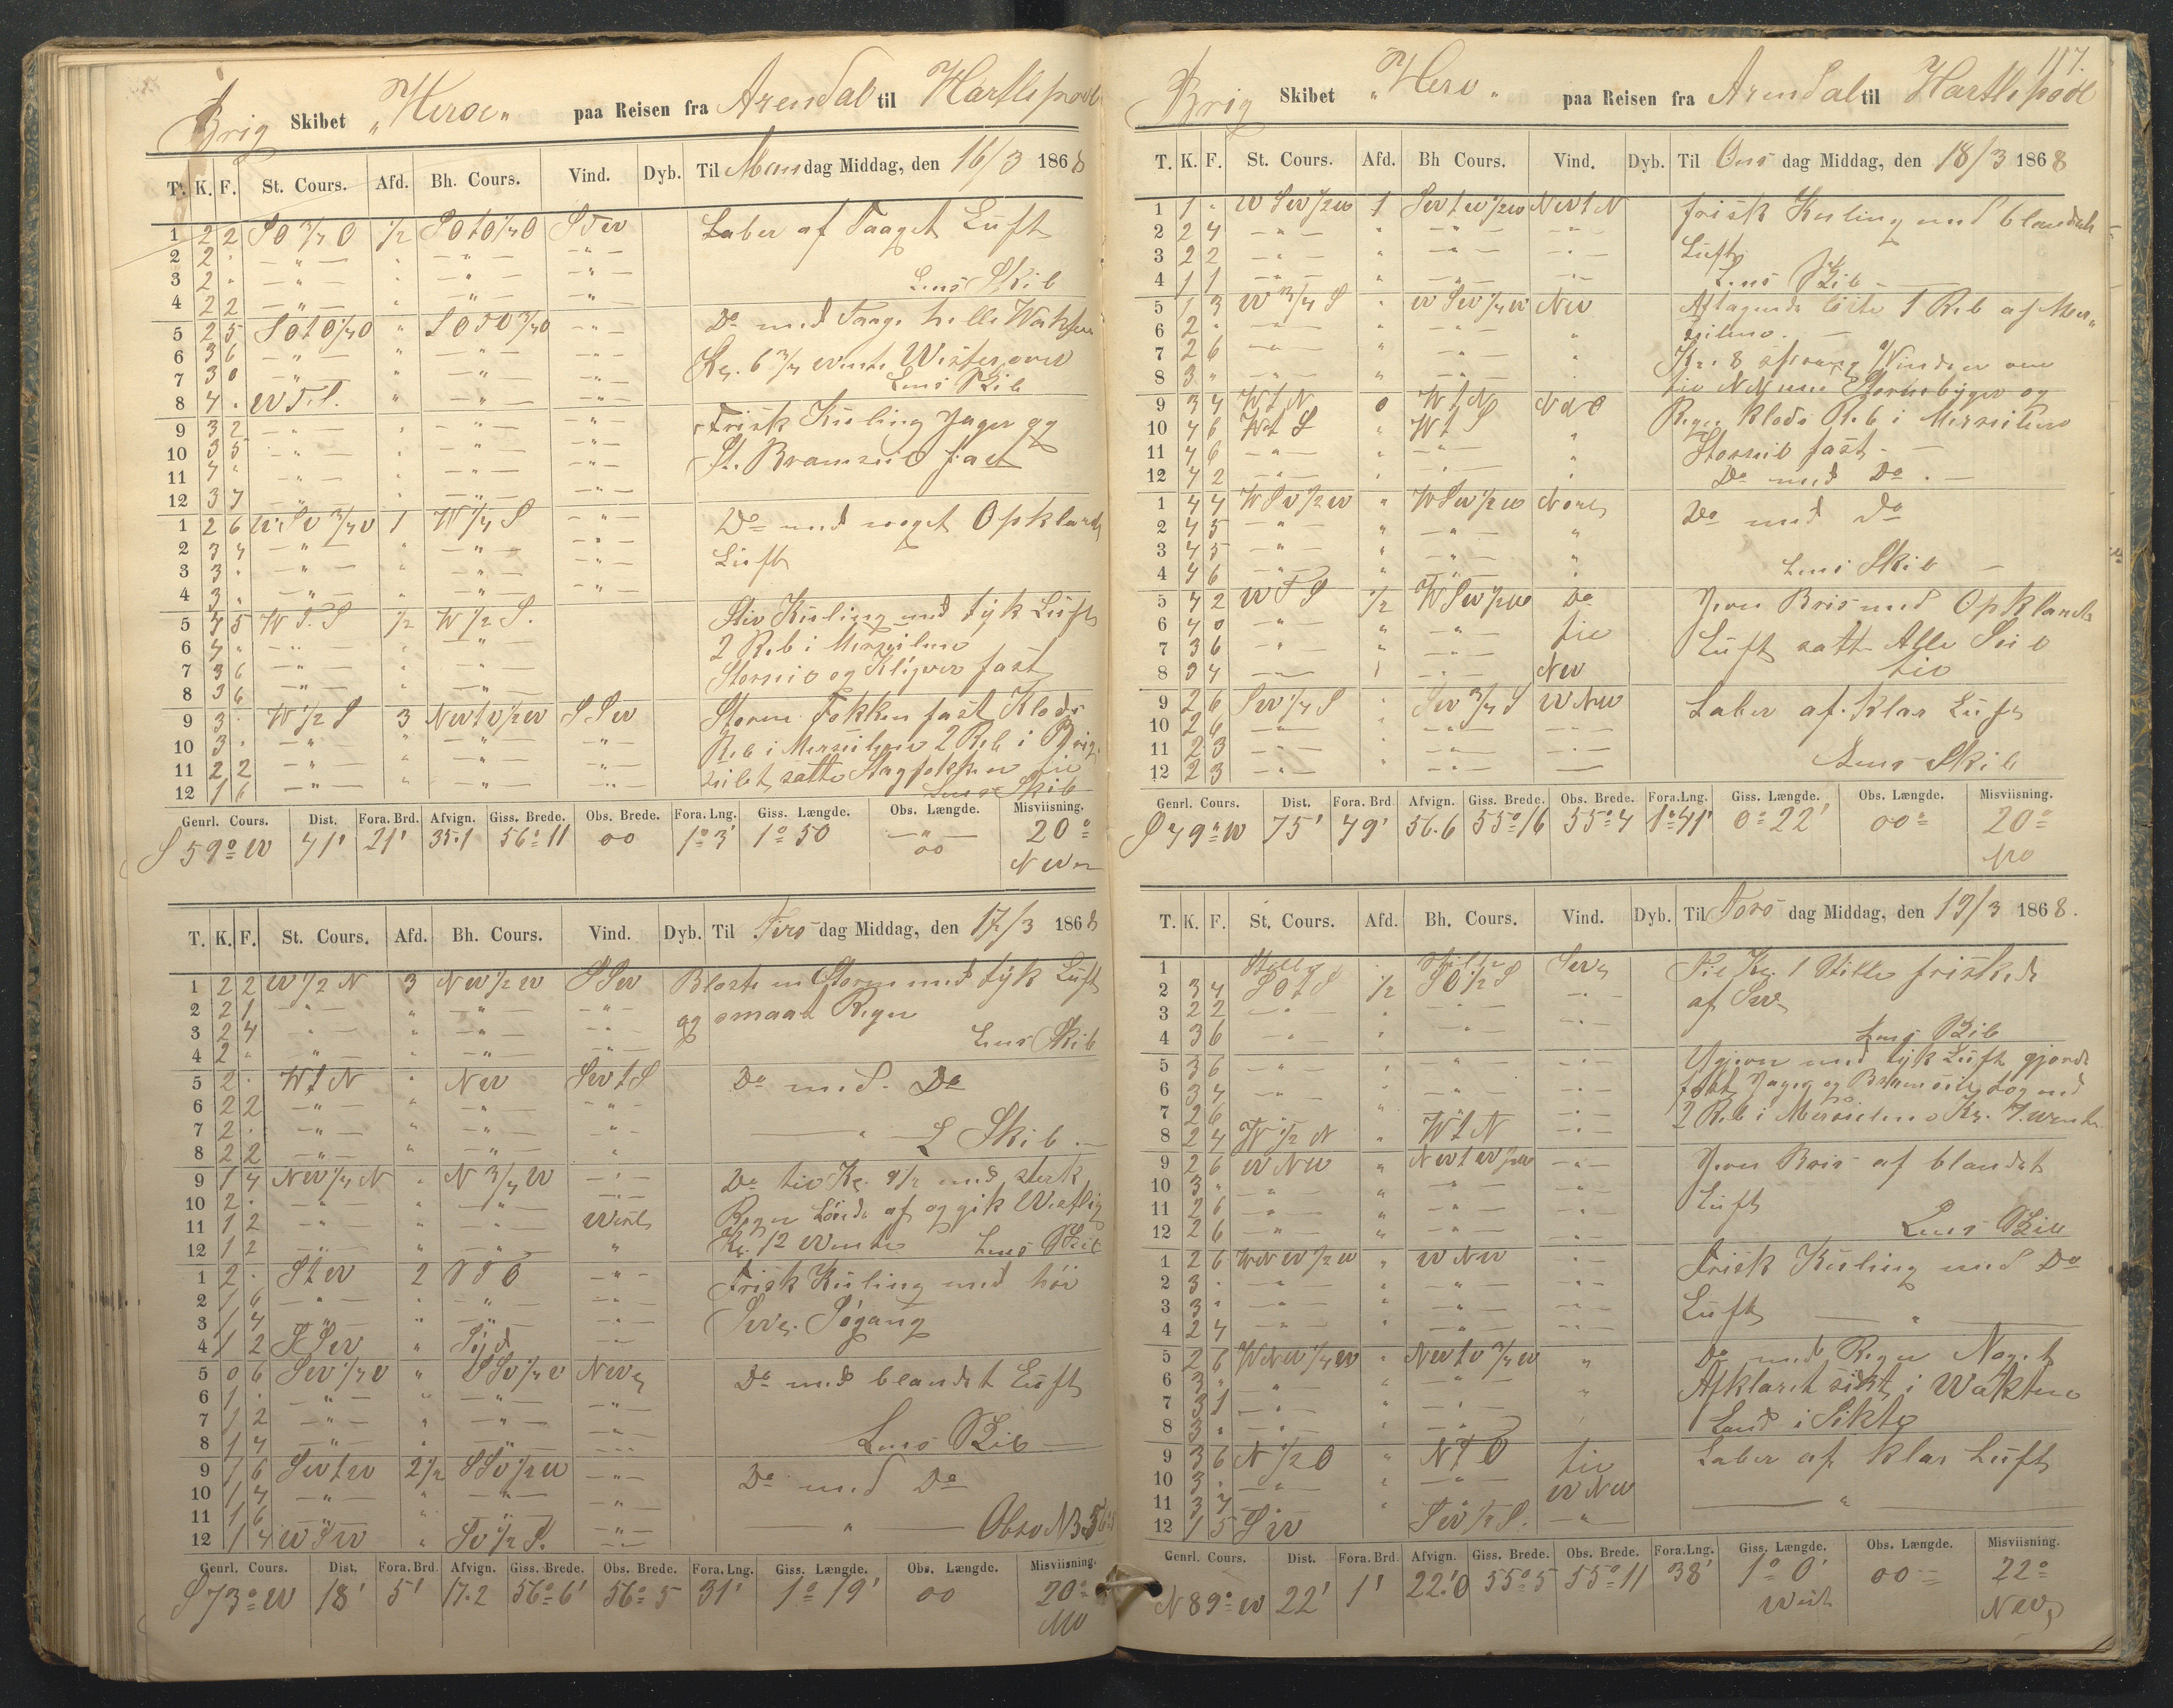 Brig Skibet „Heroe“ paa Reisen fra Arendal til Hartlepool
T. K. F. St. Cours. Afd. Bh. Cours. Vind. Dyb. Til Mandag Middag, den 16/3 1868
1 2 2 SO 3/4 O 1/2 SOtO 1/4 O Laber af Taaget Luft
2 2 " — " — " — " — — " —
3 2 " — " — " — " — — " — Lens Skib
4 2 2 — " — " — " — — " —
5 2 5 SOtO 1/4 O " — " — Do med Taage
6 3 6 — " — " — " — — " —
7 3 0 — " — " — " — — " — Lens Skib
8 4 . " — " — — " —
9 3 2 — " — " — " — — " — Frisk Kuling Jager og
10 3 5 — " — " — " — — " — St. Bramseil fast
11 4 " — " — " — " — — " —
12 3 4 — " — " — " — — " —
1 2 6 1 W 1/4 S — " — Do med noget Opklarende
2 3 4 — " — " — " — — " — Luft
3 3 . — " — " — " — — " —
4 3 . — " — " — " — — " —
5 4 5 W t S 1/2 W 1/2 S. Stiv Kuling med tyk Luft
6 4 " — " — " — " — 2 Reb i Merseilene
7 3 6 — " — " — " — Storseil og Klyver fast
8 3 6 — " — " — " —
9 3 . W 1/2 S 3 NWtW 1/2 W SSW Storm Fokken fast Klods
10 3 . — " — " — " — — " — Reb i Merseilene 2 Reb i Brig
11 2 2 — " — " — " — — " — seilet satte Stagfokken
12 1 6 — " — " — " — — " — Lens Skib
Genrl. Cours. Dist. Fora. Brd. Afvign. Giss. Brede. Obs. Brede. Fora. Lng. Giss. Længde. Obs. Længde. Misviisning.
S 59° W 41' 21' 35.1 56° 11 00 1° 3' 1° 50 — " — 00 20°
T. K. F. St. Cours. Afd. Bh. Cours. Vind. Dyb. Til Tirsdag Middag, den 17/3 1868
1 2 2 W 1/2 N 3 NW 1/2 W SSW Blæste en Storm med tyk Luft
2 2 1 — " — " — " — — " — og smaat Regn
3 2 4 — " — " — " — — " — Lens Skib
4 2 " — " — " — " — — " —
5 2 . WtN " NW SWtS Do med Do
6 2 2 — " — " — " — — " —
7 2 . — " — " — " — — " — L Skib
8 2 2 — " — " — " — "
9 1 4 NW 1/4 N " N 3/4 W — " — Do til Kl. 9 1/2 med sterk
10 2 . — " — " — " — — " — Regn af og gik Vestlig
11 1 2 — " — " — " — Kl. 12 vendte Lens Skib
12 1 2 — " — " — " — "
1 2 . StW 2 — " — Frisk Kuling med høi
2 1 6 — " — " — " — — " — Søgang
3 1 4 — " — " — " — — " —
4 1 2 SSW " Syd — " —
5 0 6 " Do med blandet Luft
6 1 . — " — " — " — — " —
7 1 2 — " — " — " — — " — Lens Skib
8 1 4 — " — " — " — — " —
9 1 6 SWtW 2 1/2 — " — Do med Do
10 1 4 — " — " — " — — " —
11 1 6 — " — " — " — — " —
12 1 4 " — " —
Genrl. Cours. Dist. Fora. Brd. Afvign. Giss. Brede. Obs. Brede. Fora. Lng. Giss. Længde. Obs. Længde. Misviisning.
S 73° W 18' 5' 17.2 56° 6' 56° 5 31' 1° 19' 00 20°
117.
Brig Skibet „Hero“ paa Reisen fra Arendal til Hartlepool
T. K. F. St. Cours. Afd. Bh. Cours. Vind. Dyb. Til Onsdag Middag, den 18/3 1868
1 1 " W SW 1/2 W 1 SWtW 1/2 W NWtN frisk Kuling med blandede
2 2 4 — " — " — " — — " — Luft
3 2 2 — " — " — " — — " — Lens Skib
4 1 1 — " — " — " — — " —
5 1 3 W 3/4 S " W SW 1/4 W NW Aftagende løste 1 Reb af Mer„
6 2 " — " — " — " — " seilene.
7 2 6 — " — " — " — " Kl. 8 sprang Vinden om
8 3 " — " — " — " — " til med Stormbyger og
9 3 4 WtN 0 WtN Regn Klods Reb i Merseilene
10 4 6 WtS " WtS " Storseil fast
11 4 6 — " — " — " — " Do med Do
12 4 2 — " — " — " — "
1 4 4 WSW 1/2 W " WSW 1/2 W Do med do
2 4 5 — " — " — " — "
3 4 5 — " — " — " — " Lens Skib
4 4 6 — " — " — " — "
5 4 2 W t S 1/2 WSW 1/2 W Do Jevn Bris med Opklarede
6 4 0 — " — " — " — til Luft satte Alle Seil
7 3 6 — " — " — " — til
8 3 4 — " — 1 — " — NW
9 2 6 SW 1/4 S " SW 3/4 S W NW Laber af Klar Luft
10 2 6 — " — " — " — — " —
11 2 3 — " — " — " — — " — Lens Skib
12 2 3 — " — " — " — —
Genrl. Cours. Dist. Fora. Brd Afvign. Giss. Brede. Obs. Brede. Fora. Lng. Giss. Længde. Obs. Længde. Misviisning.
S 49° W 75' 49' 56.6 55° 16 55° 4 1° 41' 0° 22' 00° 20°
T. K. F. St. Cours. Afd. Bh. Cours. Vind. Dyb. Til Torsdag Middag, den 19/3 1868.
1 Stille Stille Til Kl. 1 Stille friskede
2 3 4 SOtS 1/2 SO 1/2 S — " — af
3 2 2 — " — " — " — — " —
4 3 6 — " — " — " — — " — Lens Skib
5 3 6 — " — " — " — — " — Ujevn med tyk Luft gjorde
6 3 4 — " — " — " — — " — fast Jager og Bramseil tog ned
7 2 6 " " — " — 2 Reb i Merseilene Kl. 7 vendte
8 2 4 W 1/2 N " WtN — " —
9 2 6 W NW " NWtW 1/2 W — " — Jevn Bris af blandet
10 3 " — " — " — " — — " — Luft
11 2 6 — " — " — " — — " —
12 2 6 — " — " — " — — " — Lens Skib
1 2 6 WNW 1/2 W " W NW — " — Frisk Kuling med Do
2 3 . — " — " — " — — " — Luft — " —
3 3 " — " — " — " — — " —
4 2 4 — " — " — " — — " —
5 2 6 WNW 1/4 W " NWtW 3/4 W " Do med Regn Noget
6 3 " — " — " — " — " Afklaret sidst i Vakten
7 3 1 — " — " — " — Land i Sikte
8 3 " — " — " — " —
9 3 6 N 1/2 O " NtO til Laber af klar Luft
10 3 . " — " — W NW — " —
11 3 4 "
12 1 5 — " —
Genrl. Cours. Dist. Fora. Brd. Afvign. Giss. Brede. Obs. Brede. Fora. Lng. Giss. Længde. Obs. Længde. Misviisning.
N 89° W 22' 1' 22.0 55° 5 55° 11 38' 1° 0' West 00 22°